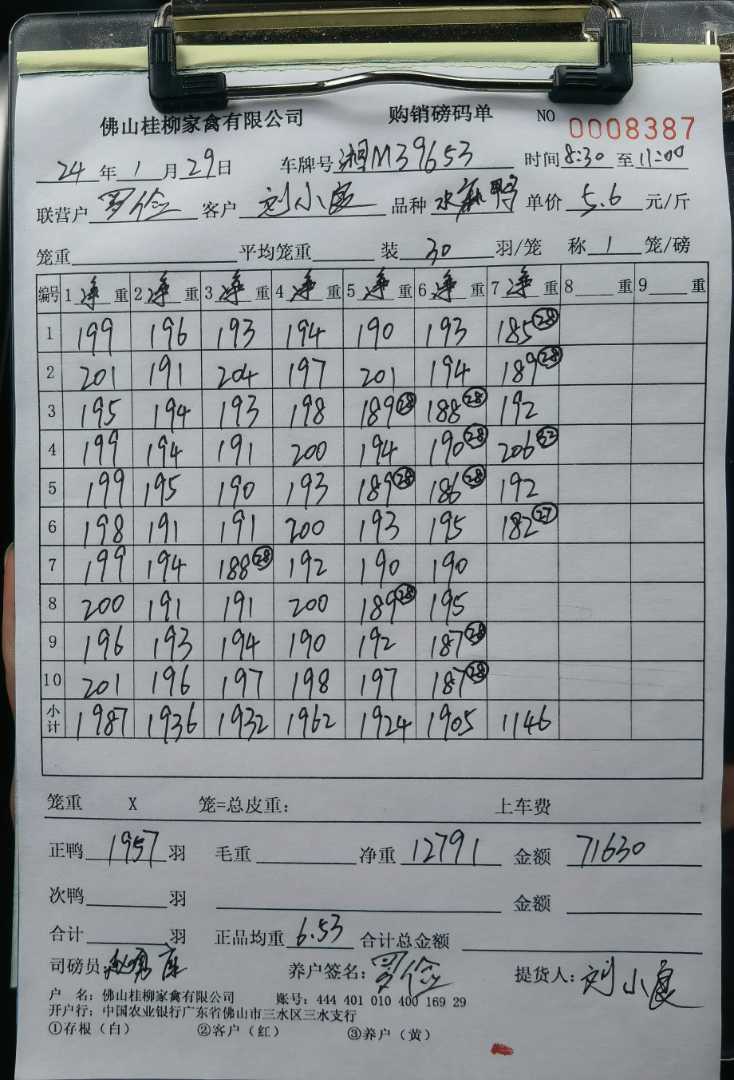 佛山桂柳家禽有限公司 购销磅码单 NO 0008387
24 年 1 月 29 日 车牌号 湘M39653 时间 8:30 至 11:00
联营户 罗俭 客户 刘小良 品种 水麻鸭 单价 5.6 元/斤
笼重 平均笼重 装 30 羽/笼 称 1 笼/磅
编号 1 净 重 2 净 重 3 净 重 4 净 重 5 净 重 6 净 重 7 净 重 8 重 9 重
1 199 196 193 194 190 193 185 28
2 201 191 204 197 201 194 189 28
3 195 194 193 198 189 28 188 28 192
4 199 194 191 200 194 190 28 206 32
5 199 195 190 193 189 28 186 28 192
6 198 191 191 200 193 195 182 27
7 199 194 188 28 192 190 190
8 200 191 191 200 189 28 195
9 196 193 194 190 192 187 28
10 201 196 197 198 197 187 28
小计 1987 1936 1932 1962 1924 1905 1146
笼重 X 笼=总皮重： 上车费
正鸭 1957 羽 毛重 净重 12791 金额 71630
次鸭 羽 金额
合计 羽 正品均重 6.53 合计总金额
司磅员 养户签名： 罗俭 提货人： 刘小良
户 名：佛山桂柳家禽有限公司 账号：444 401 010 400 169 29
开户行：中国农业银行广东省佛山市三水区三水支行
①存根（白） ②客户（红） ③养户（黄）